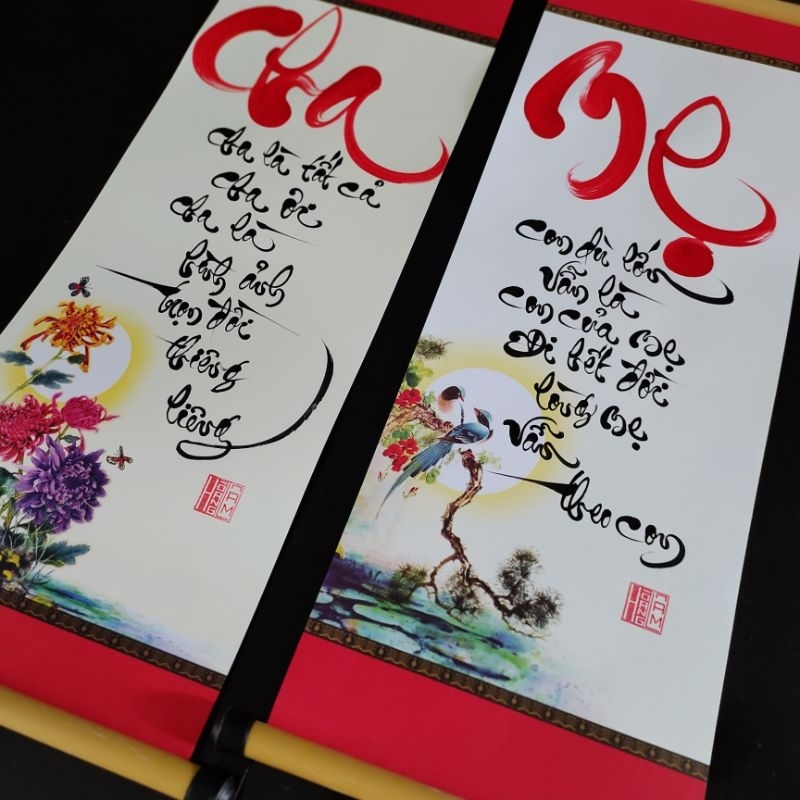 Cha
cha là tất cả
cha ơi
cha là
hình ảnh
trọn đời
thiêng
liêng
Mẹ
con dù lớn
vẫn là
con của mẹ
Đi hết đời
lòng mẹ
vẫn
theo con